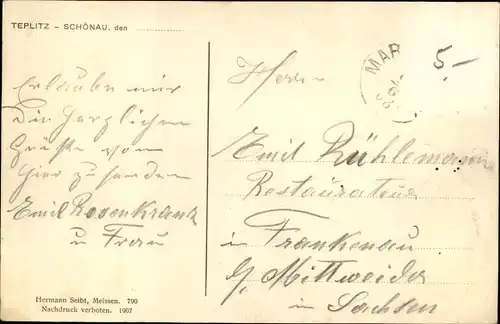 TEPLITZ – SCHÖNAU, den
Erlaube mir
Die herzlichen
Grüße von
hier zu senden
Emil Rosenkranz
u Frau
Hermann Seibt, Meissen. 790
Nachdruck verboten. 1907
MAR
5,-
Herrn
Emil Rühlemann
Restaurateur
in Frankenau
b/ Mittweida
in Sachsen